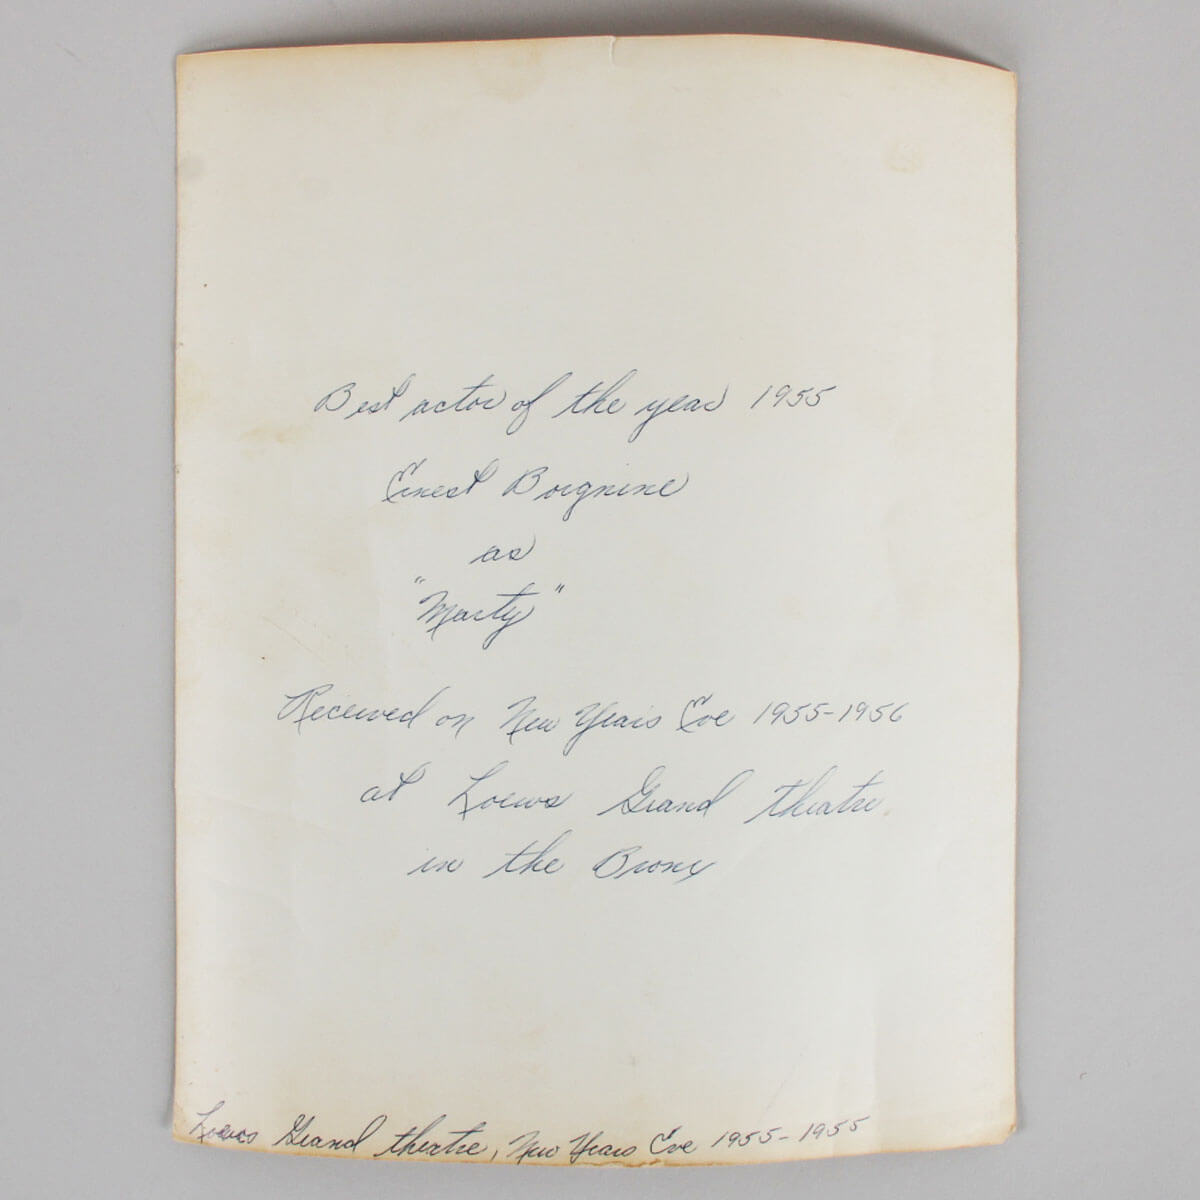 Best actor of the year 1955
Ernest Borgnine
as
"Marty"
Received on New Years Eve 1955-1956
at Loews Grand theatre
in the Bronx
Loews Grand theatre, New Years Eve 1955-1955